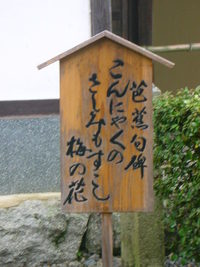 芭蕉句碑
こんにゃくの
さしみもすこし
梅の花